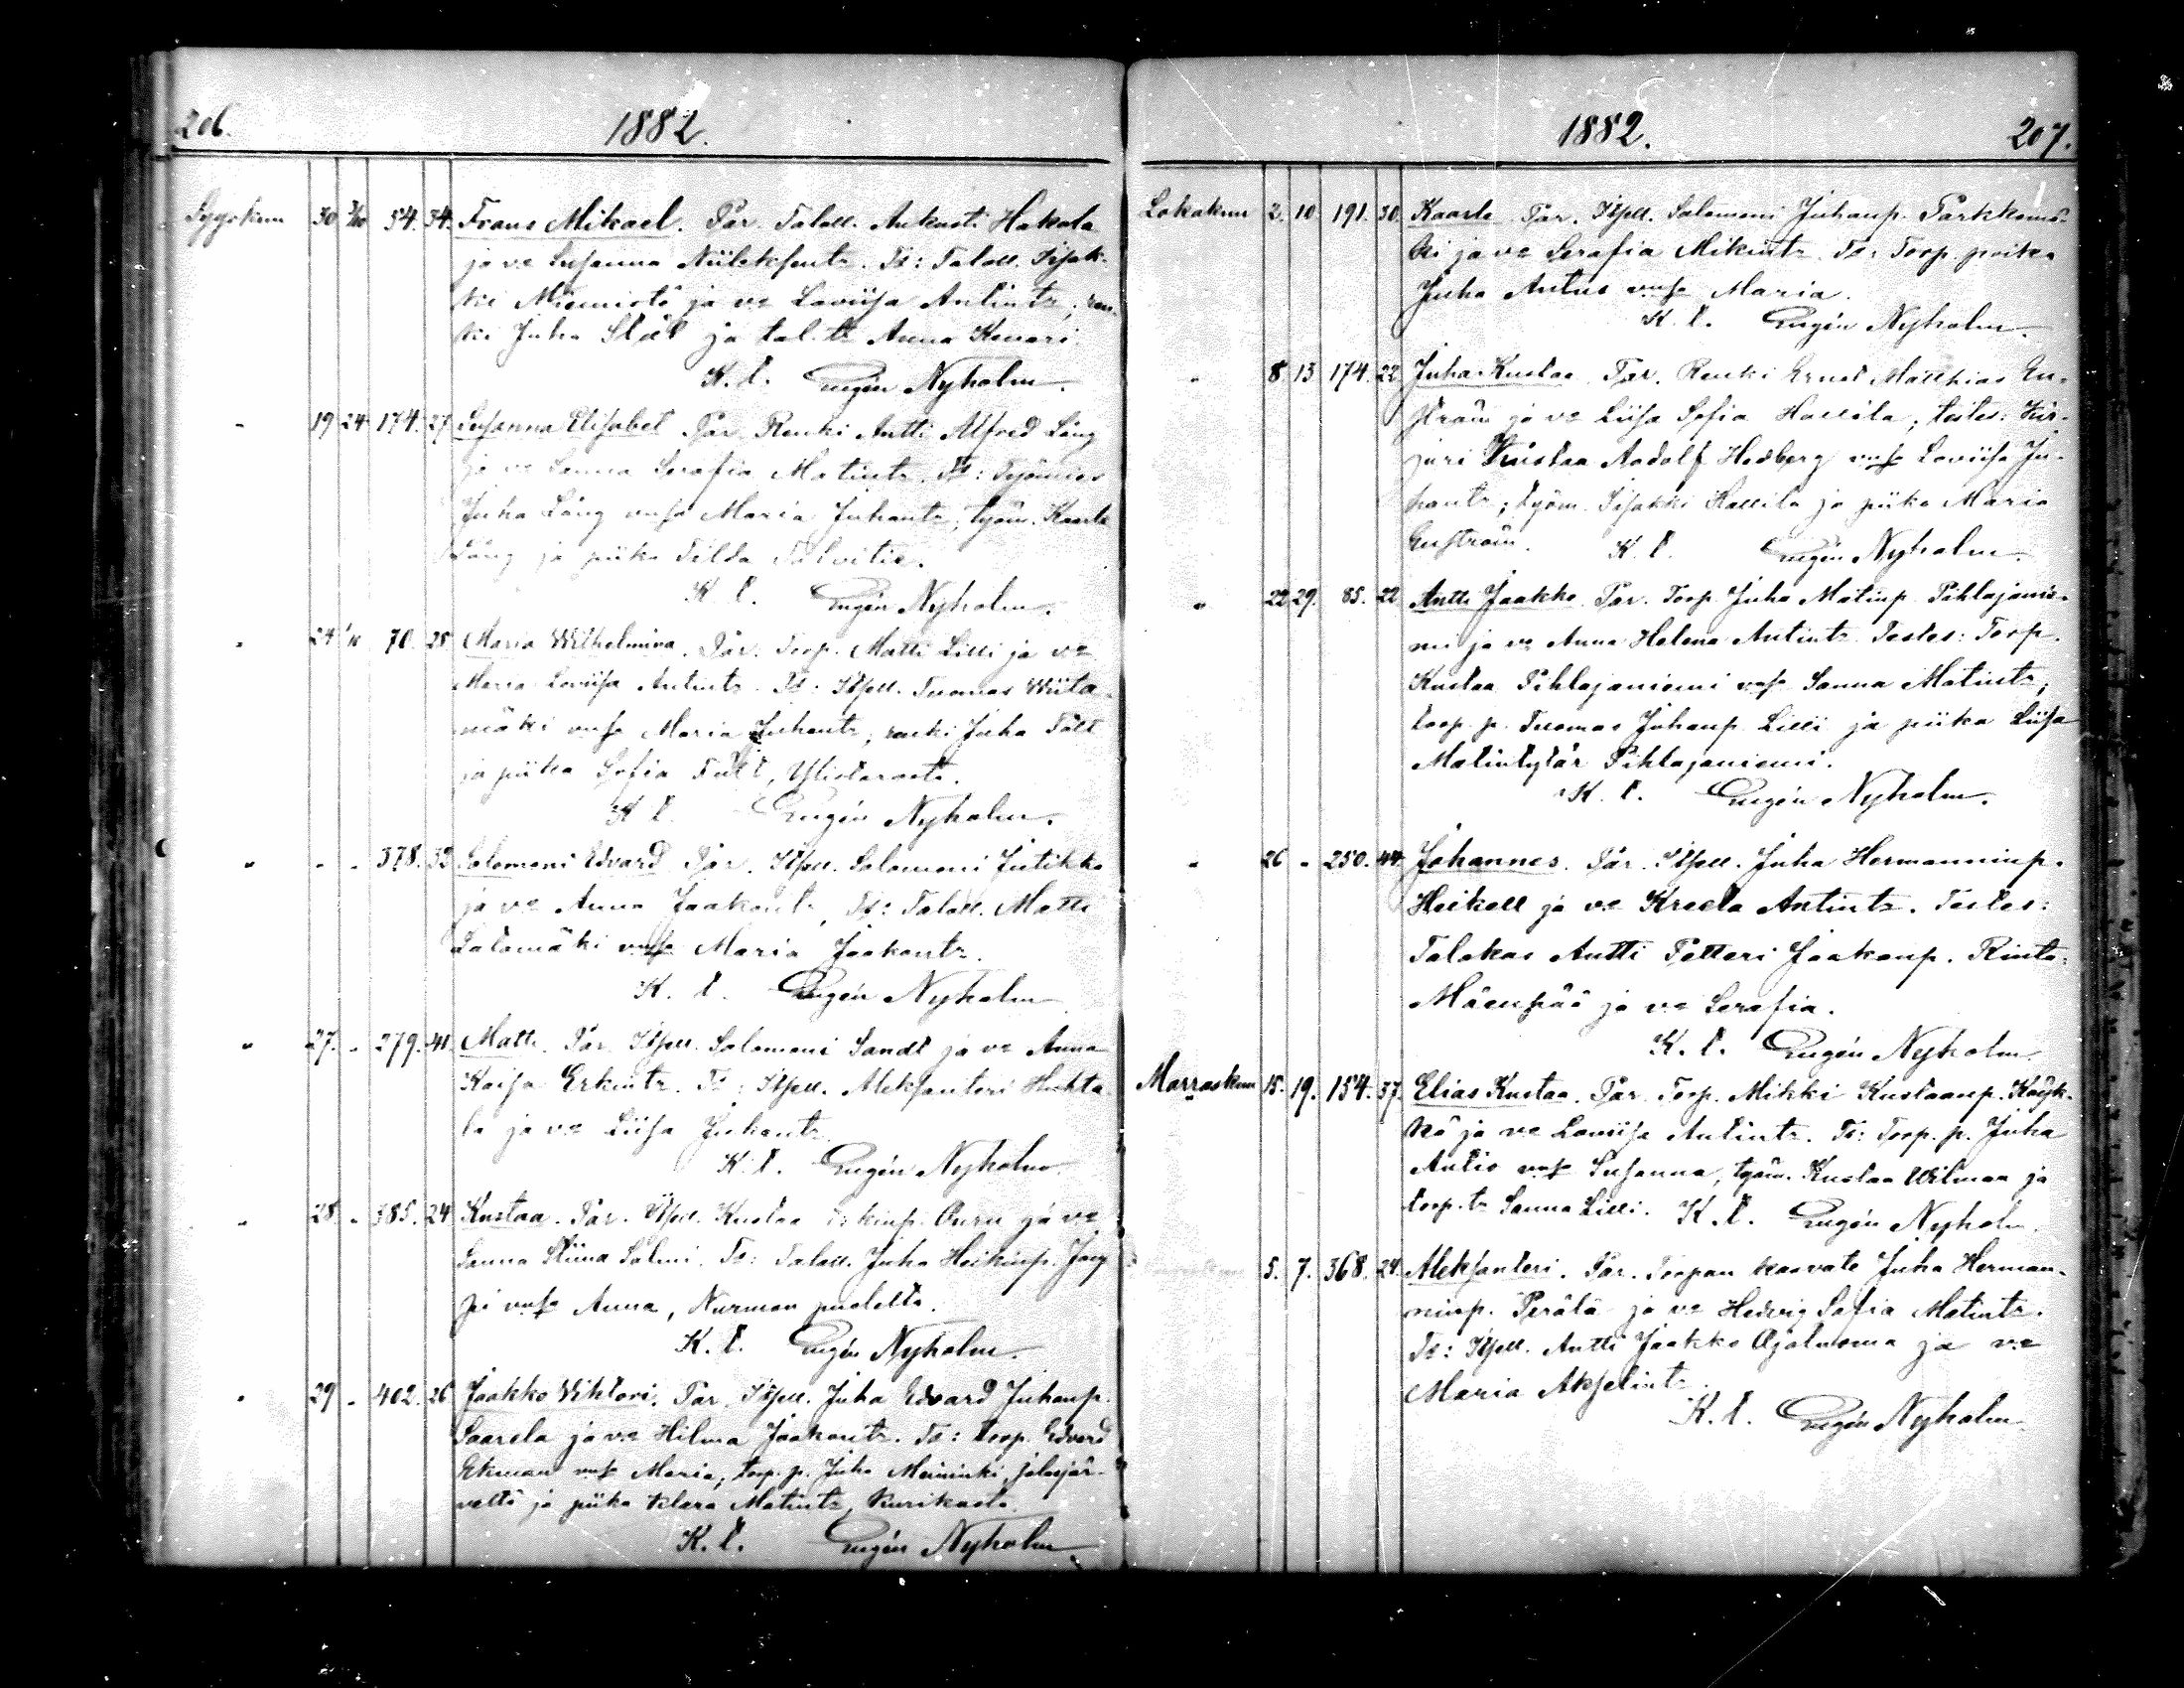 206.
1882.
Syyskuu 30 3/10 54. 34. Frans Mikael. Pär. Taloll. Aukusti Hakola
ja vo Susanna Niileksentr. Ts: Taloll. Iisak-
ki Niemistö ja vo Loviisa Antintr; ren-
ki Juha Stål ja tal. tr Anna Kenari.
K. t. Eugén Nyholm.
" 19 24 174. 27 Susanna Elisabet. Pär. Renki Antti Alfred Lång
ja vo Sanna Serafia Matintr. Ts: Työmies
Juha Lång vmsa Maria Juhantr; työm. Kaarle
Lång ja piika Tilda Talvitie.
K. t. Eugén Nyholm.
" 24 1/10 70. 28 Maria Wilhelmina. Pär. Torp. Matti Lilli ja vo
Maria Loviisa Antintr. Ts: Itsell. Tuomas Wiita-
mäki vmsa Maria Juhantr; renki Juha Fält
ja piika Sofia Fält, Ylistarosta.
K. t. Eugén Nyholm.
" - - 378. 32 Salomoni Edvard. Pär. Itsell. Salomoni Jutikka
ja vo Anna Jaakontr. Ts: Taloll. Matti
Latomäki vmsa Maria Jaakontr.
K. t. Eugén Nyholm
" 27. - 279. 41. Matti. Pär. Itsell. Salomoni Sandt ja vo Anna
Kaisa Erkintr. Ts: Itsell. Aleksanteri Huhta-
la ja vo Liisa Juhantr.
K. t. Eugén Nyholm.
" 28. - 385. 24 Kustaa. Pär. Itsell. Kustaa Erkinp. Ouru ja vo
Sanna Stiina Salmi. Ts: Taloll. Juha Heikinp. Joup
pi vmsa Anna, Nurmon puolelta.
K. t. Eugén Nyholm.
" 29 - 402. 26 Jaakko Wihtori. Pär. Itsell. Juha Edvard Juhanp.
Saarela ja vo Hilma Jaakontr. Ts: torp. Edvard
Ekman vmsa Maria; torp. p. Juha Meininki, Jalasjär-
veltä ja piika Klara Matintr, Kurikasta.
K. t. Eugén Nyholm
1882.
207.
Lokakuu 2. 10. 191. 30. Kaarle. Pär. Itsell. Salomoni Juhanp. Pärkkomä-
ki ja vo Serafia Mikintr. Ts: Torp. poika
Juha Antus vmsa Maria.
K. t. Eugén Nyholm.
" 8. 13 174. 22 Juha Kustaa. Pär. Renki Ernst Matthias En-
ström ja vo Liisa Sofia Hallila; testes: Kir-
juri Kustaa Aadolf Hedberg vmsa Loviisa Ju-
hantr; työm. Iisakki Hallila ja piika Maria
Enström. K. t. Eugén Nyholm.
" 22 29. 85. 22 Antti Jaakko. Pär. Torp. Juha Matinp. Pihlajanie-
mi ja vo Anna Helena Antintr. Testes: Torp.
Kustaa Pihlajaniemi vmsa Sanna Matintr;
torp. p. Tuomas Juhanp. Lilli ja piika Liisa
Matintytär Pihlajaniemi.
K. t. Eugén Nyholm.
" 26 - 250. 44. Johannes. Pär. Itsell. Juha Hermanninp.
Heikell ja vo Kreeta Antintr. Testes:
Talokas Antti Petteri Jaakonp. Rinta-
Mäenpää ja vo Serafia.
K. t. Eugén Nyholm
Marraskuu 15. 19. 154. 37. Elias Kustaa. Pär. Torp. Mikki Kustaanp. Köyk-
kä ja vo Loviisa Antintr. Ts: Torp. p. Juha
Antio vmsa Susanna, työm. Kustaa Wilman ja
torp. tr Sanna Lilli. K. t. Eugén Nyholm.
5. 7. 368. 24. Aleksanteri. Pär. Torpan kasvate Juha Herman-
ninp. Perälä ja vo Hedvig Sofia Matintr.
Ts: Itsell. Antti Jaakko Ojaluoma ja vo
Maria Akselintr.
K. t. Eugén Nyholm